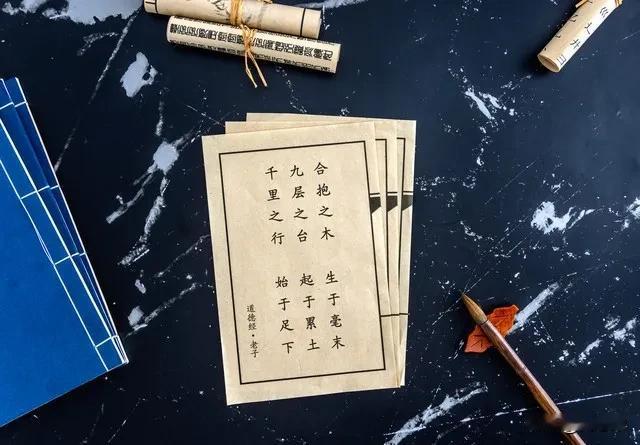 合抱之木 生于毫末
九层之台 起于累土
千里之行 始于足下
道德经·老子